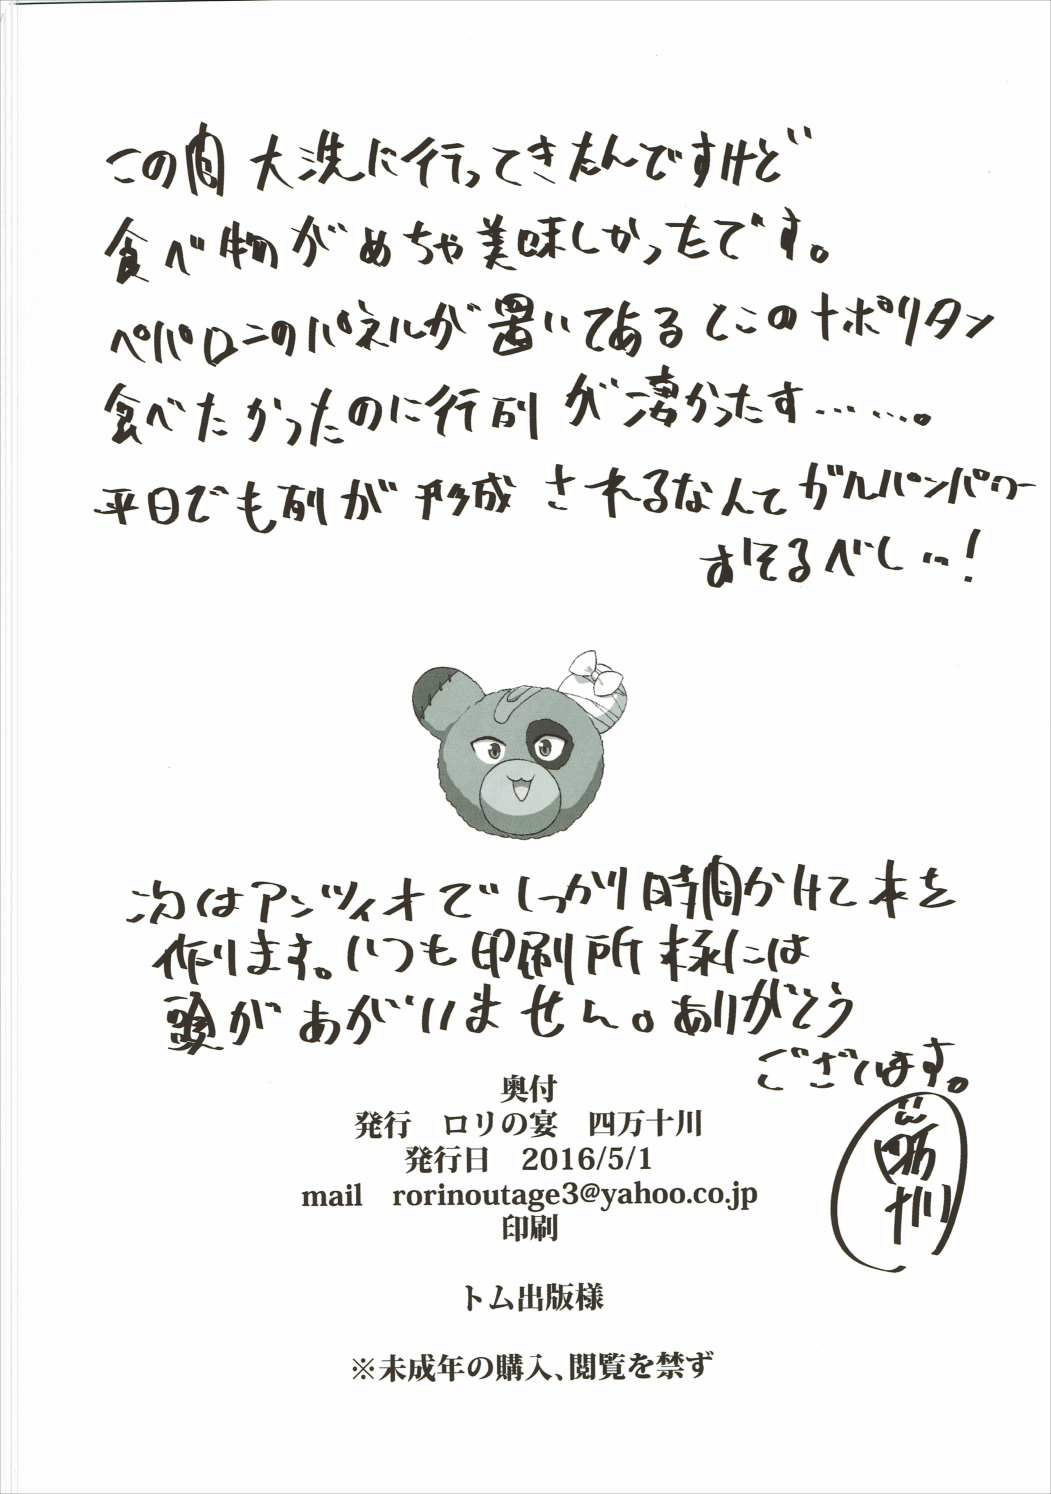 この間 大洗に行ってきたんですけど
食べ物がめちゃ美味しかったです。
ペパロニのパネルが置いてあるとこのナポリタン
食べたかったのに行列が凄かったす……。
平日でも列が形成されるなんてガルパンパワー
おそるべし…！
次はアンツィオでしっかり時間かけて本を
作ります。いつも印刷所様には
頭があがいません。ありがとう
ございます。
四万十川
奥付
発行　ロリの宴　四万十川
発行日　2016/5/1
mail　rorinoutage3@yahoo.co.jp
印刷
トム出版様
※未成年の購入、閲覧を禁ず